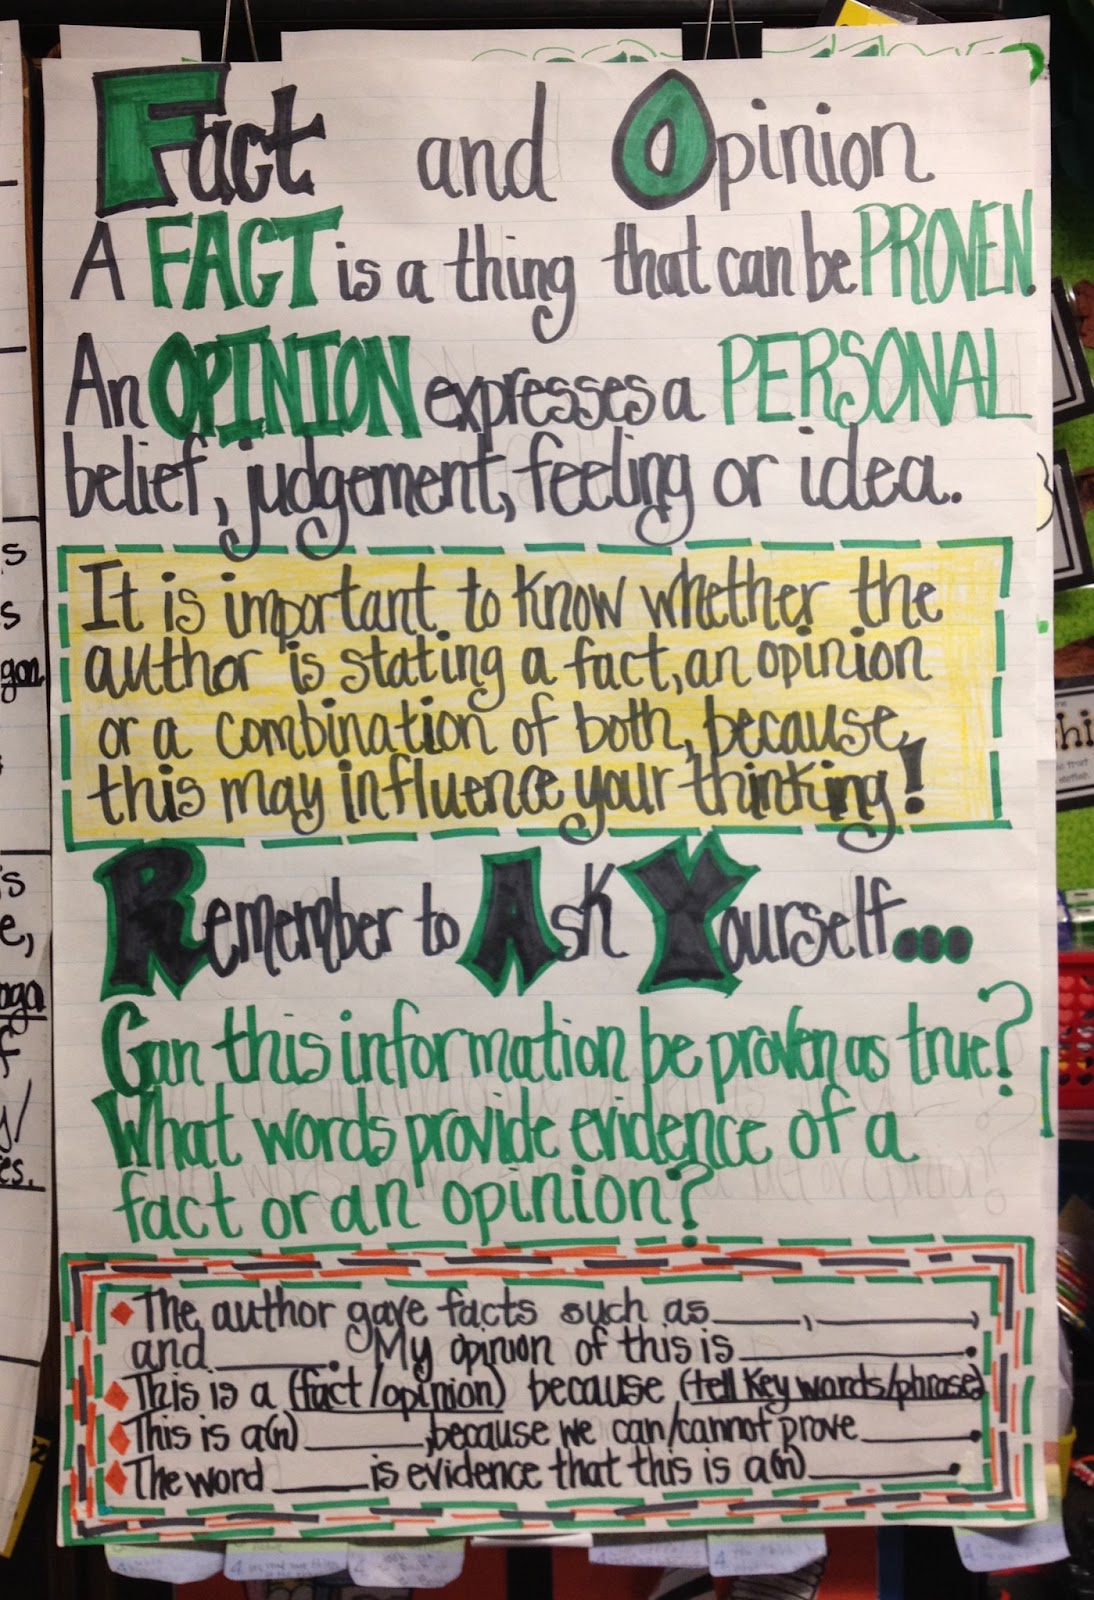 Fact and Opinion
A FACT is a thing that can be PROVEN.
An OPINION expresses a PERSONAL
belief, judgement, feeling or idea.
It is important to know whether the
author is stating a fact, an opinion
or a combination of both, because
this may influence your thinking!
Remember to Ask Yourself...
Can this information be proven as true?
What words provide evidence of a
fact or an opinion?
The author gave facts such as_____, __________,
and ______. My opinion of this is ____________.
This is a (fact/opinion) because (tell key words/phrase)
This is a(n) ______, because we can/cannot prove ______.
The word _____ is evidence that this is a(n) ________.